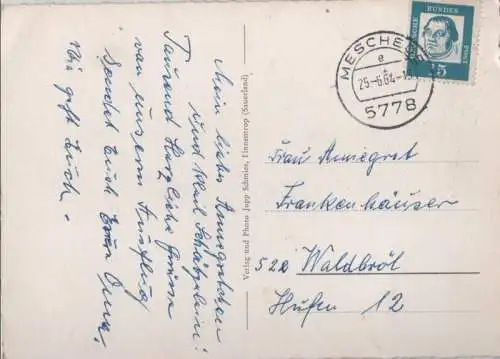 Mein liebes Annegretchen
und Karl Schätzelein!
Tausend herzliche Grüsse
von unserm Ausflug
sendet Euch Eure Oma,
Wie geht Euch.
Verlag und Photo Jupp Schmies, Finnentrop (Sauerland)
DEUTSCHE BUNDESPOST
15
MESCHEDE
e
25.-6.64.-15
5778
Frau Annegret
Frankenhäuser
522 Waldbröl
Hufen 12